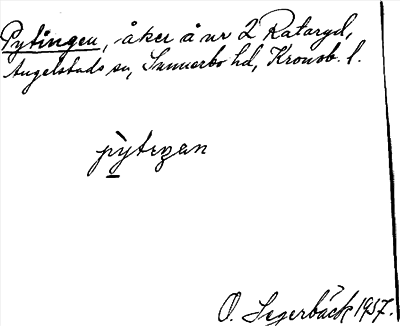 Pytingen, åker å nr 2 Rataryd,
Angelstads sn, Sunnerbo hd, Kronob. l.
pỳteŋan
O. Segerbäck 1937.